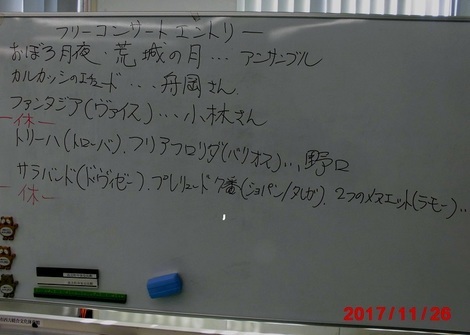 フリーコンサートエントリー
おぼろ月夜・荒城の月…アンサンブル
カルカッシのエチュード…舟岡さん
ファンタジア(ヴァイス)…小林さん
ー休ー
トリーハ(トローバ)、フリアフロリダ(バリオス)…野口
サラバンド(ド・ヴィゼー)、プレリュード7番(ショパン/タレガ)、2つのメヌエット(ラモー)…
ー休ー
2017/11/26